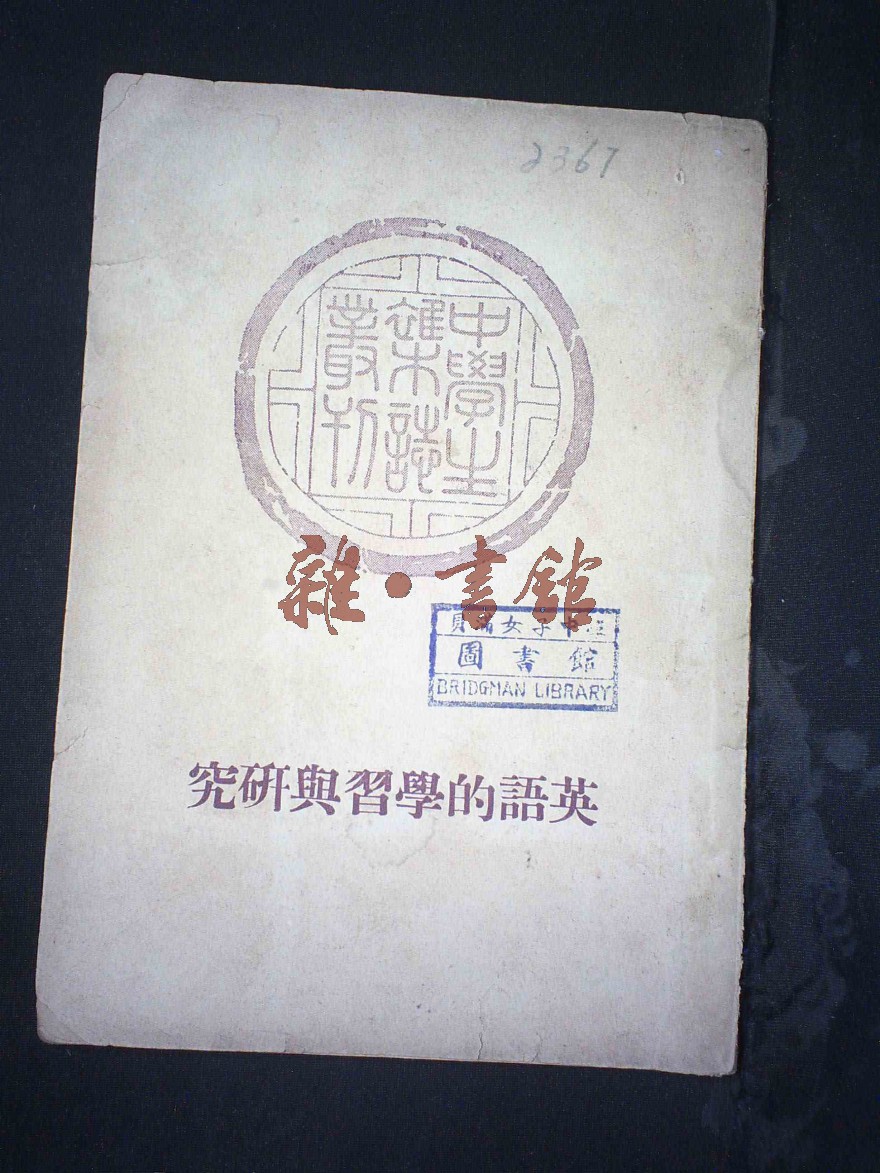 2367
中學生
雜誌
叢刊
雜·書館
貝滿女子中
圖書館
BRIDGMAN LIBRARY
英語的學習與研究